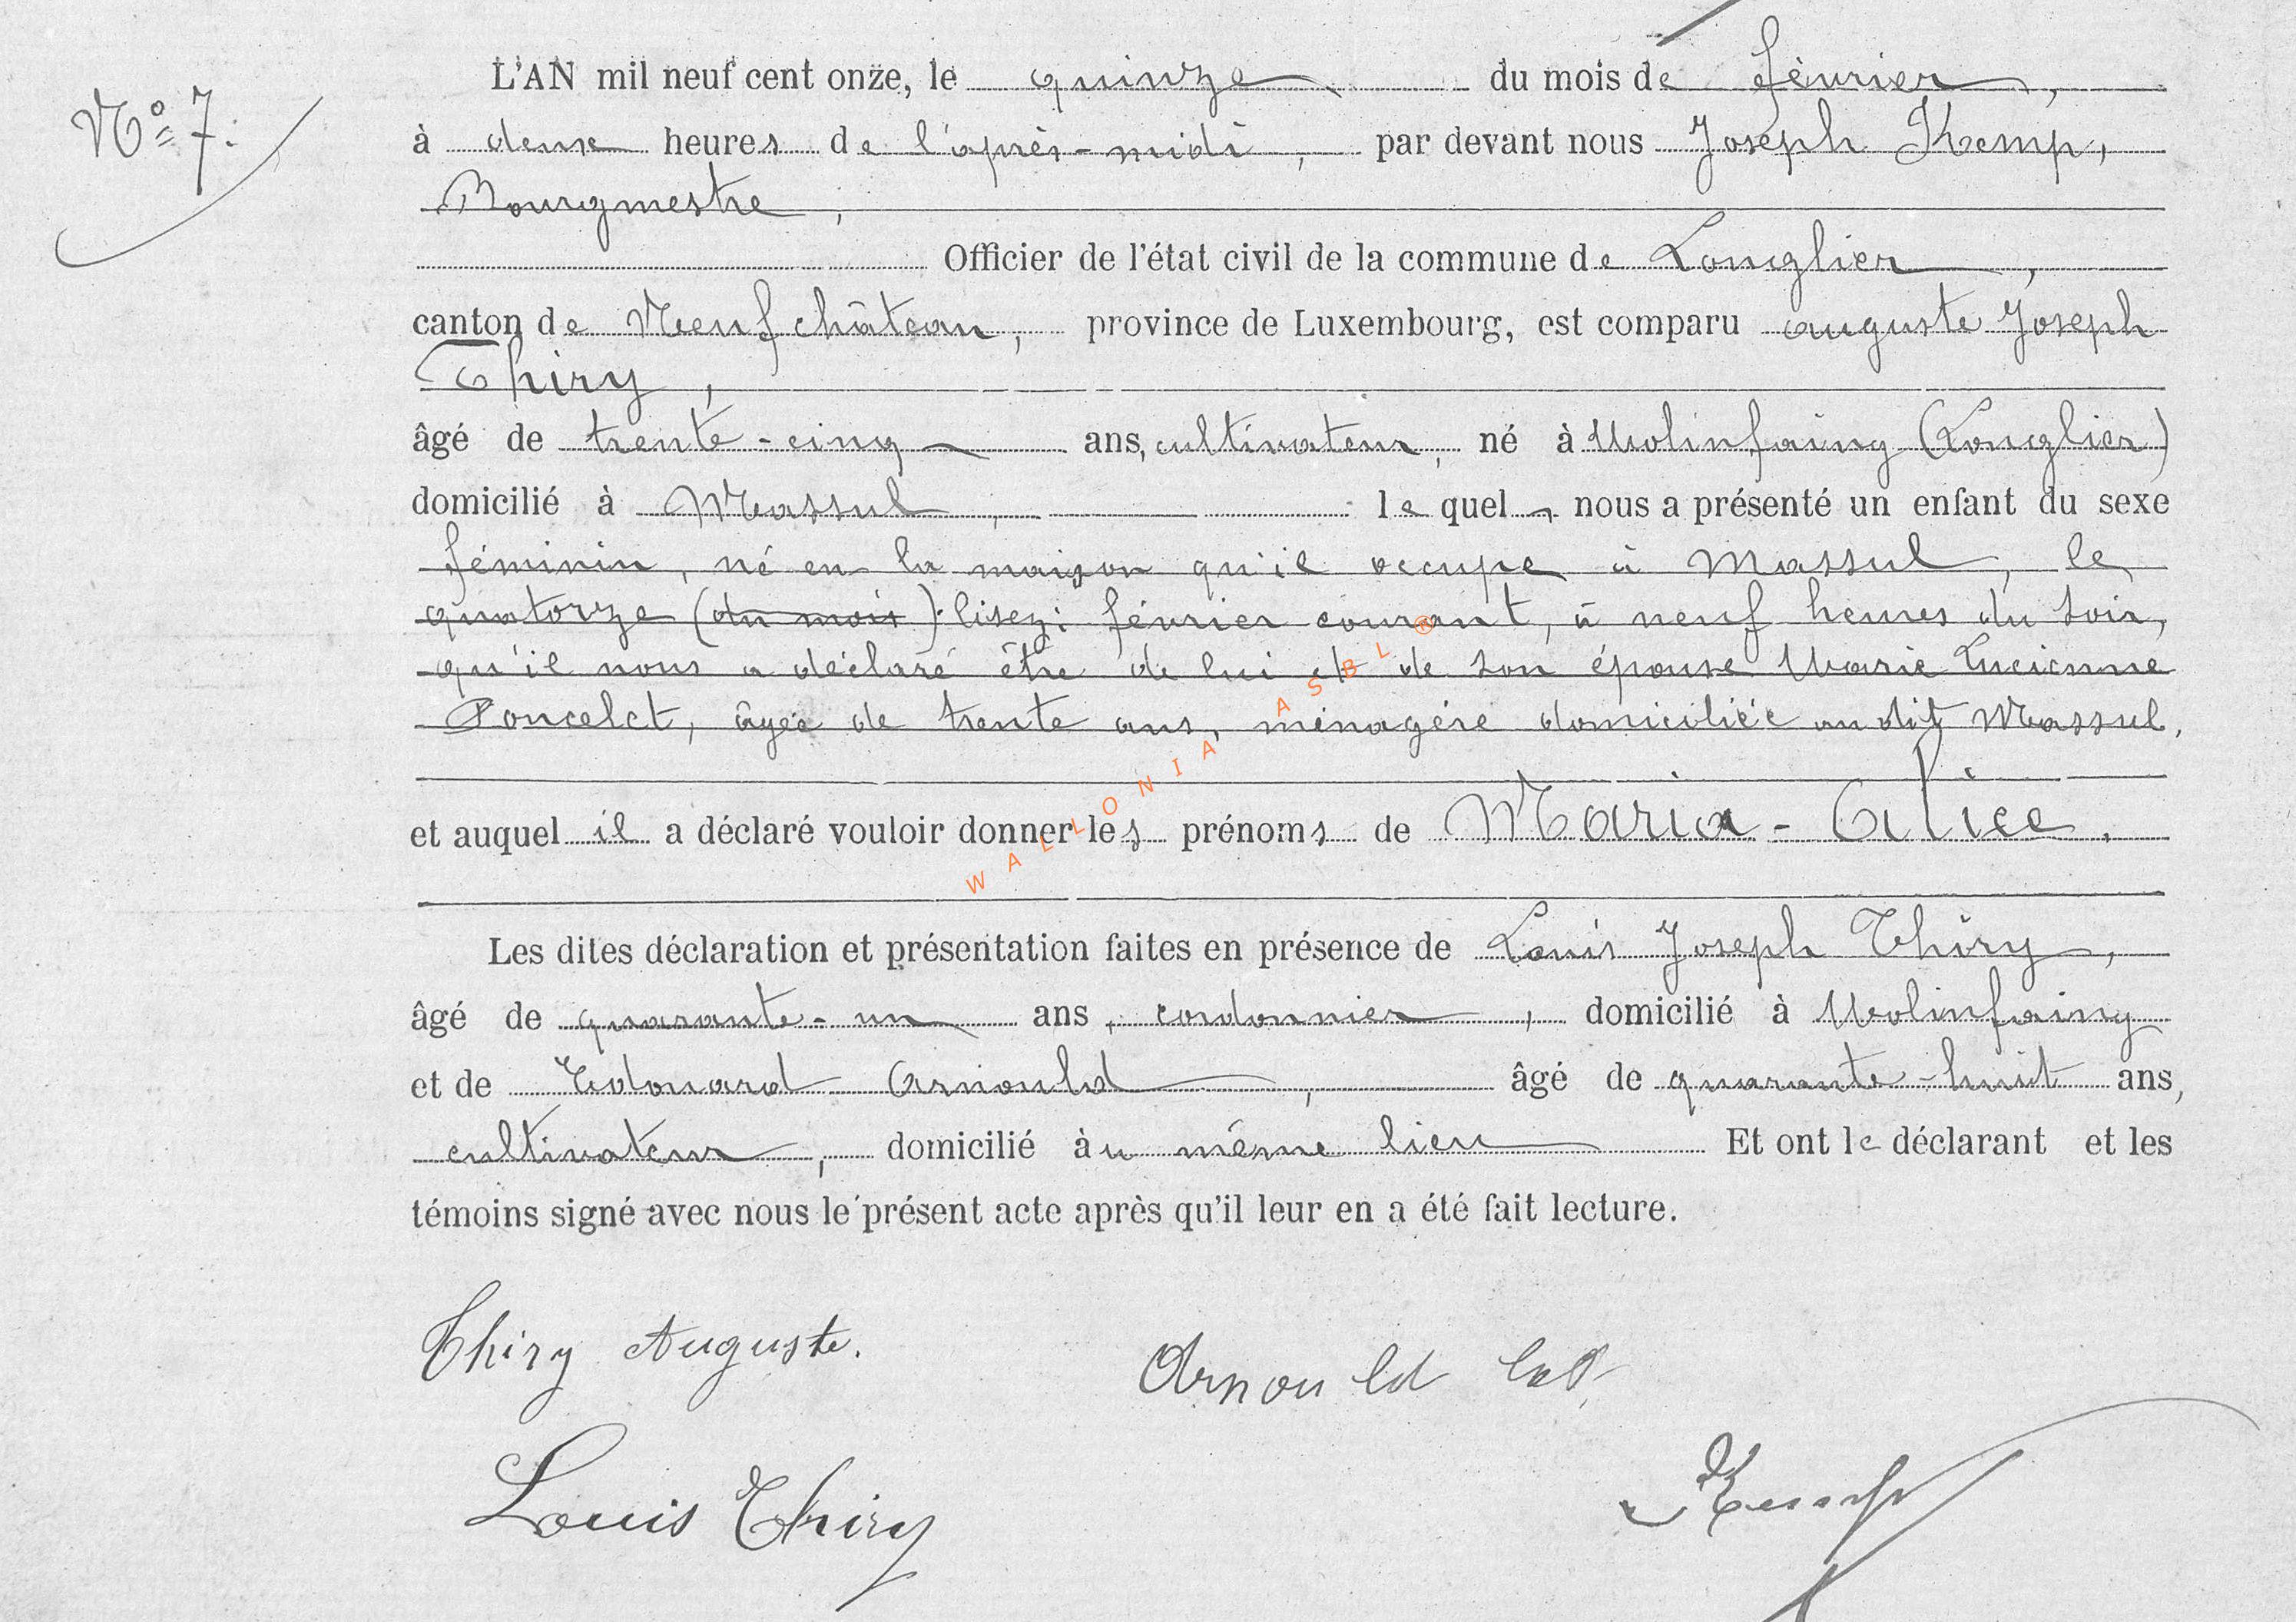 L'AN mil neuf cent onze, le quinze du mois de février,
N° 7.
à deux heures de l'après-midi, par devant nous Joseph Kemp,
Bourgmestre,
Officier de l'état civil de la commune de Longlier,
canton de Neufchâteau, province de Luxembourg, est comparu Auguste Joseph
Thiry,
âgé de trente-cinq ans, cultivateur, né à Molinfaing (Longlier)
domicilié à Massul, lequel nous a présenté un enfant du sexe
féminin, né en la maison qu'il occupe à Massul, le
quatorze (du mois) lisez: février courant, à neuf heures du soir,
qu'il nous a déclaré être de lui et de son épouse Marie Lucienne
Poncelet, âgée de trente ans, ménagère domiciliée au dit Massul.
et auquel il a déclaré vouloir donner les prénoms de Maria-Alice.
Les dites déclaration et présentation faites en présence de Louis Joseph Thiry,
âgé de quarante-un ans, cordonnier, domicilié à Molinfaing
et de Edouard Arnould, âgé de quarante-huit ans,
cultivateur, domicilié au même lieu Et ont le déclarant et les
témoins signé avec nous le présent acte après qu'il leur en a été fait lecture.
Thiry Auguste.
Arnould
Louis Thiry
Kemp
WALLONIA ASBL ®